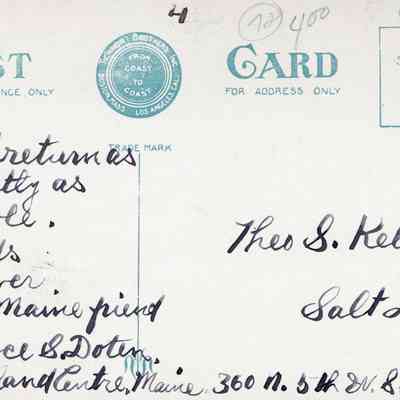 4
12 400
ST CARD
NCE ONLY
FOR ADDRESS ONLY
BROTHERS, INC.
FROM
COAST
TO
COAST
BOSTON, MASS. LOS ANGELES, CAL.
TRADE MARK
return as
tly as
le.
ds
ver
Maine friend
ce S. Doten.
land Centre, Maine.
Theo S. Kel
Salt
360 N. 5th W. S